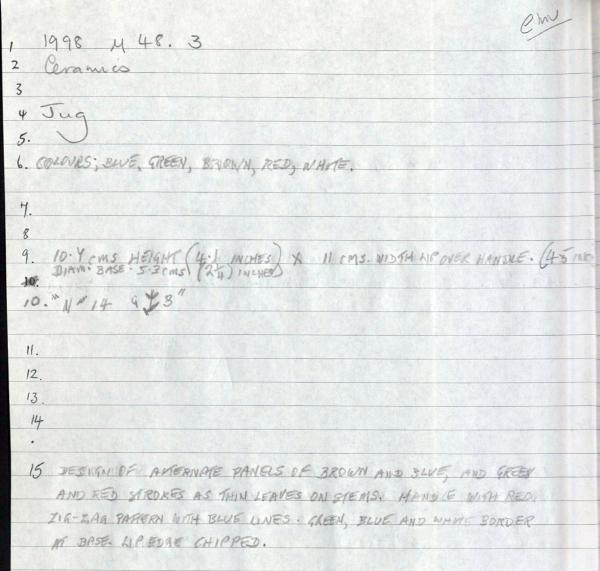 emu
1 1998 M 48. 3
2 Ceramics
3
4 Jug
5.
6. COLOURS; BLUE, GREEN, BROWN, RED, WHITE.
7.
8
9. 10.4 CMS HEIGHT (4.1 INCHES) X 11 CMS. WIDTH LIP OVER HANDLE. (4
DIAM. BASE. 5.3 CMS (2¼) INCHES)
10.
10. "N" 14 3"
11.
12.
13.
14
.
15 DESIGN OF ALTERNATE PANELS OF BROWN AND BLUE, AND GREEN
AND RED STROKES AS THIN LEAVES ON STEMS. HANDLE WITH RED,
ZIG-ZAG PATTERN WITH BLUE LINES. GREEN, BLUE AND WHITE BORDER
AT BASE. LIP EDGE CHIPPED.